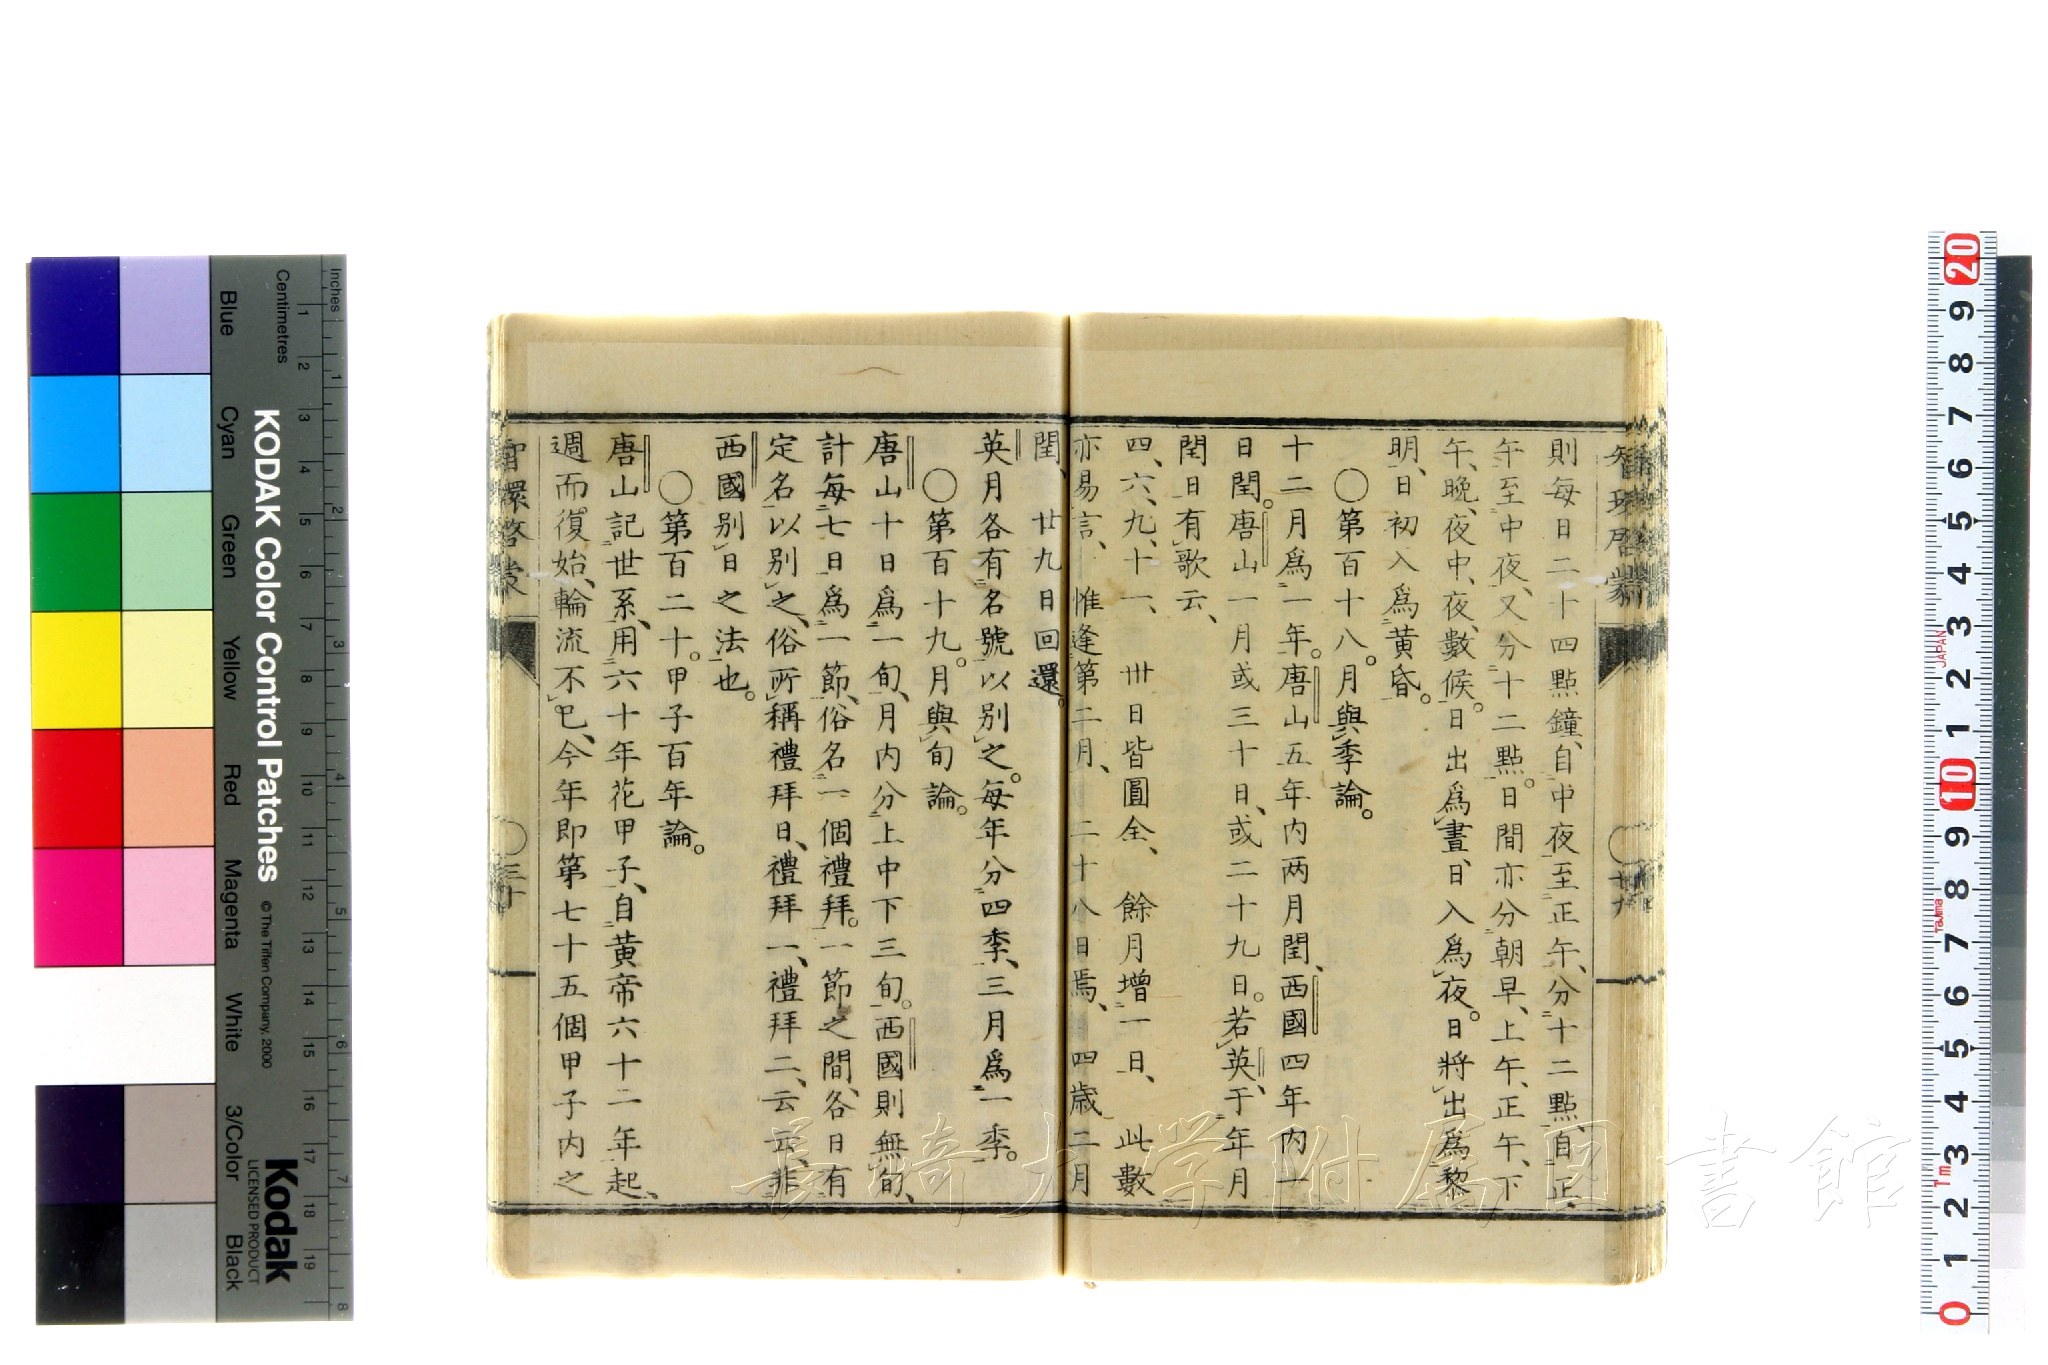 智環啓蒙
則每日二十四點鐘、自中夜至正午、分十二點、自正
午至中夜、又分十二點。日間亦分朝早、上午、正午、下
午、晚、夜、中夜、數候。日出爲晝、日入爲夜。日將出爲黎
明、日初入爲黃昏。
〇第百十八。月與季論。
十二月爲一年。唐山五年內兩月閏、西國四年內一
日閏。唐山一月或三十日、或二十九日。若英、于年月
閏日有歌云、
四、六、九、十一、 卅日皆圓全、 餘月增一日、 此數
亦易言、 惟逢第二月、 二十八日焉、 四歲二月
閏、 廿九日回還。
英月各有名號、以別之。每年分四季、三月爲一季。
〇第百十九。月與旬論。
唐山十日爲一旬、月內分上中下三旬。西國則無旬、
計每七日爲一節、俗名一個禮拜。一節之間、各日有
定名以別之、俗所稱禮拜日、禮拜一、禮拜二、云云、非
西國別日之法也。
〇第百二十。甲子百年論。
唐山記世系、用六十年花甲子、自黃帝六十二年起、
週而復始、輪流不已、今年即第七十五個甲子內之
智環啓蒙
〇三十
長崎大学附属図書館
KODAK Color Control Patches
© The Tiffen Company, 2000
Kodak
LICENSED PRODUCT
Inches
Centimetres
Blue
Cyan
Green
Yellow
Red
Magenta
White
3/Color
Black
JAPAN
Tajima